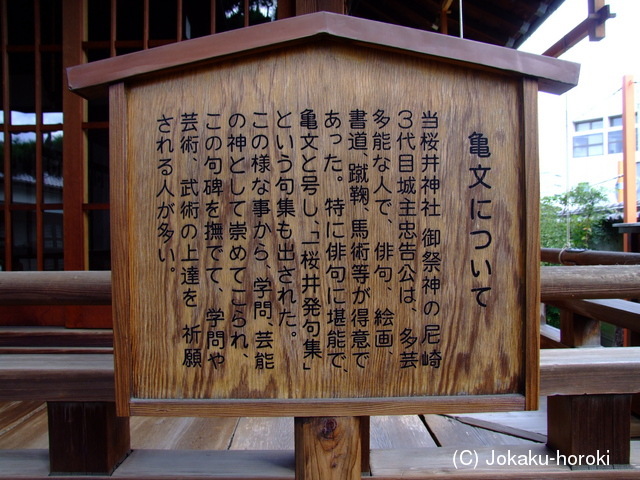 亀文について
当桜井神社 御祭神の尼崎
3代目城主忠告公は、多芸
多能な人で、俳句、絵画、
書道、蹴鞠、馬術等が得意で
あった。特に俳句に堪能で、
亀文と号し「一桜井発句集」
という句集も出された。
この様な事から、学問、芸能
の神として崇めてこられ、
この句碑を撫でて、学問や
芸術、武術の上達を 祈願
される人が多い。
(C) Jokaku-horoki